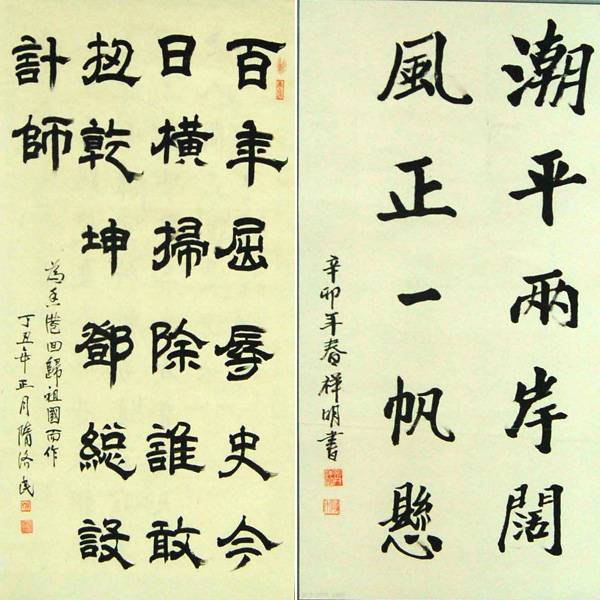 百年屈辱史今
日橫掃除誰敢
扭乾坤鄧総設
計師
為香港回歸祖國而作
丁丑年正月隋洛民
潮平兩岸闊
風正一帆懸
辛卯年春祥明書